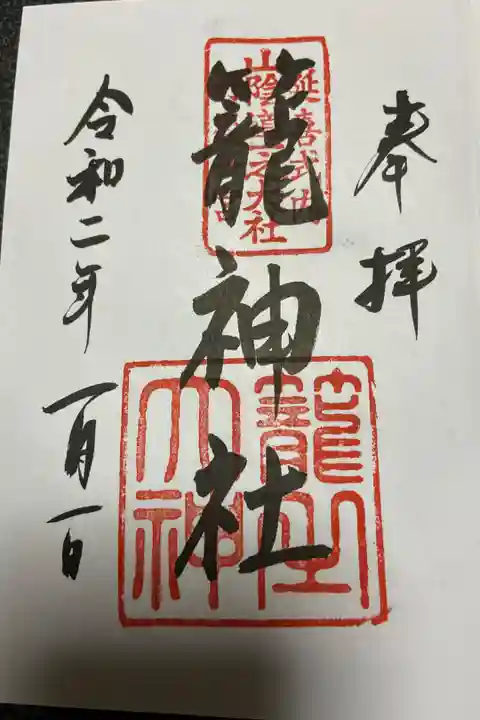 奉拝
延喜式内
山陰道之大社
籠神社
籠之大神
令和二年一月一日